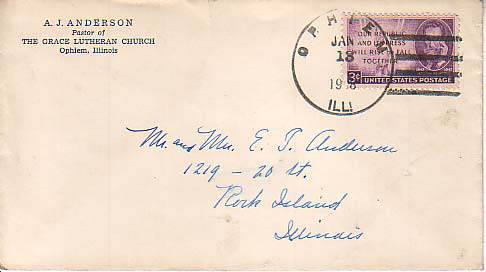 A. J. ANDERSON
Pastor of
THE GRACE LUTHERAN CHURCH
Ophiem, Illinois
OPHIEM
JAN
13
ILL.
OUR REPUBLIC
AND ITS PRESS
WILL RISE OR FALL
TOGETHER
3¢ UNITED STATES POSTAGE
Mr. and Mrs. E. T. Anderson
1219 - 20 St.
Rock Island
Illinois